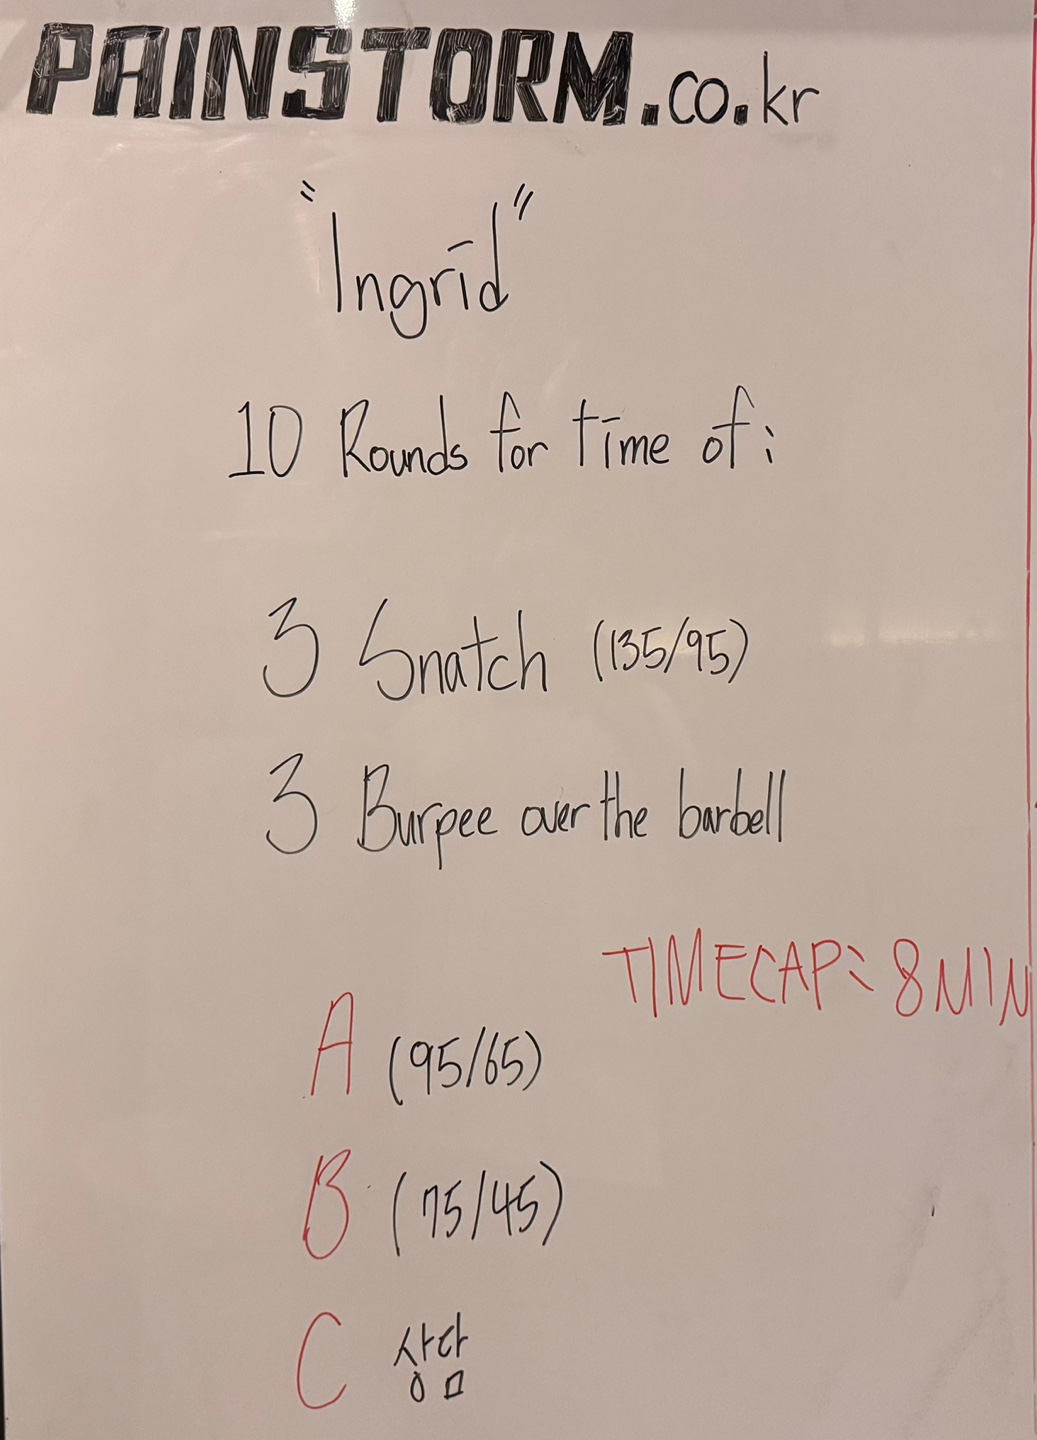 PAINSTORM.co.kr
"Ingrid"
10 Rounds for time of:
3 Snatch (135/95)
3 Burpee over the barbell
TIMECAP: 8MIN
A (95/65)
B (75/45)
C 상담